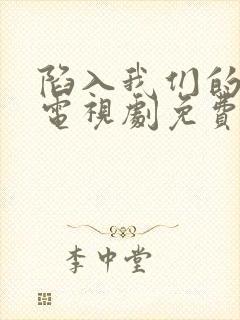 陷入我们的
電視劇免費
李中堂